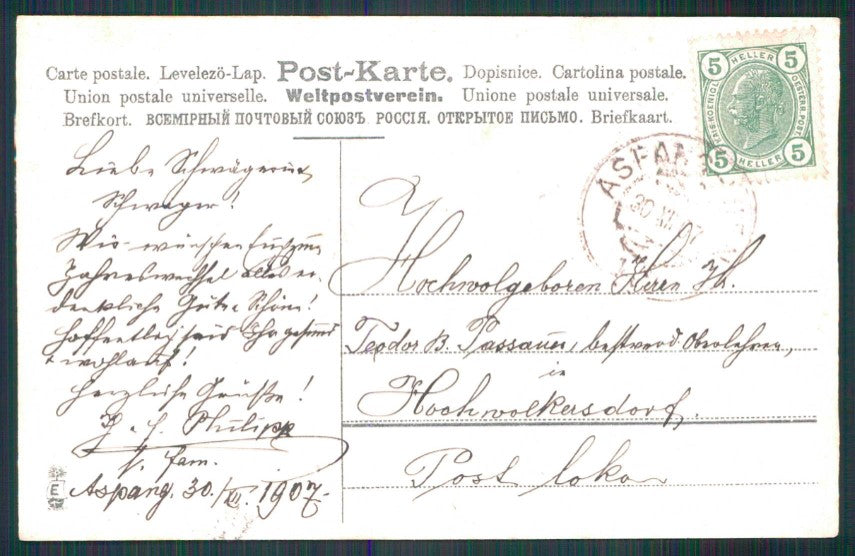 Carte postale. Levelezö-Lap. Post-Karte. Dopisnice. Cartolina postale.
Union postale universelle. Weltpostverein. Unione postale universale.
Brefkort. ВСЕМІРНЫЙ ПОЧТОВЫЙ СОЮЗЪ РОССІЯ. ОТКРЫТОЕ ПИСЬМО. Briefkaart.
5 HELLER 5
KAIS. KOENIGL. OESTERR. POST.
5 HELLER 5
ASPANG
30 XII 07
Liebe Schwägerin u
Schwager!
Wir wünschen Euch zum
Jahreswechsel alles er-
denkliche Gute & Schöne!
Hoffentlich seid Ihr gesund
+ wohlauf!
Herzliche Grüße!
Philipp
s. fam.
Aspang. 30./XII. 1907.
Hochwolgeboren Herrn Th.
Teodor B. Passauer, Oberlehrer,
in
Hochwolkersdorf.
Post loko
E